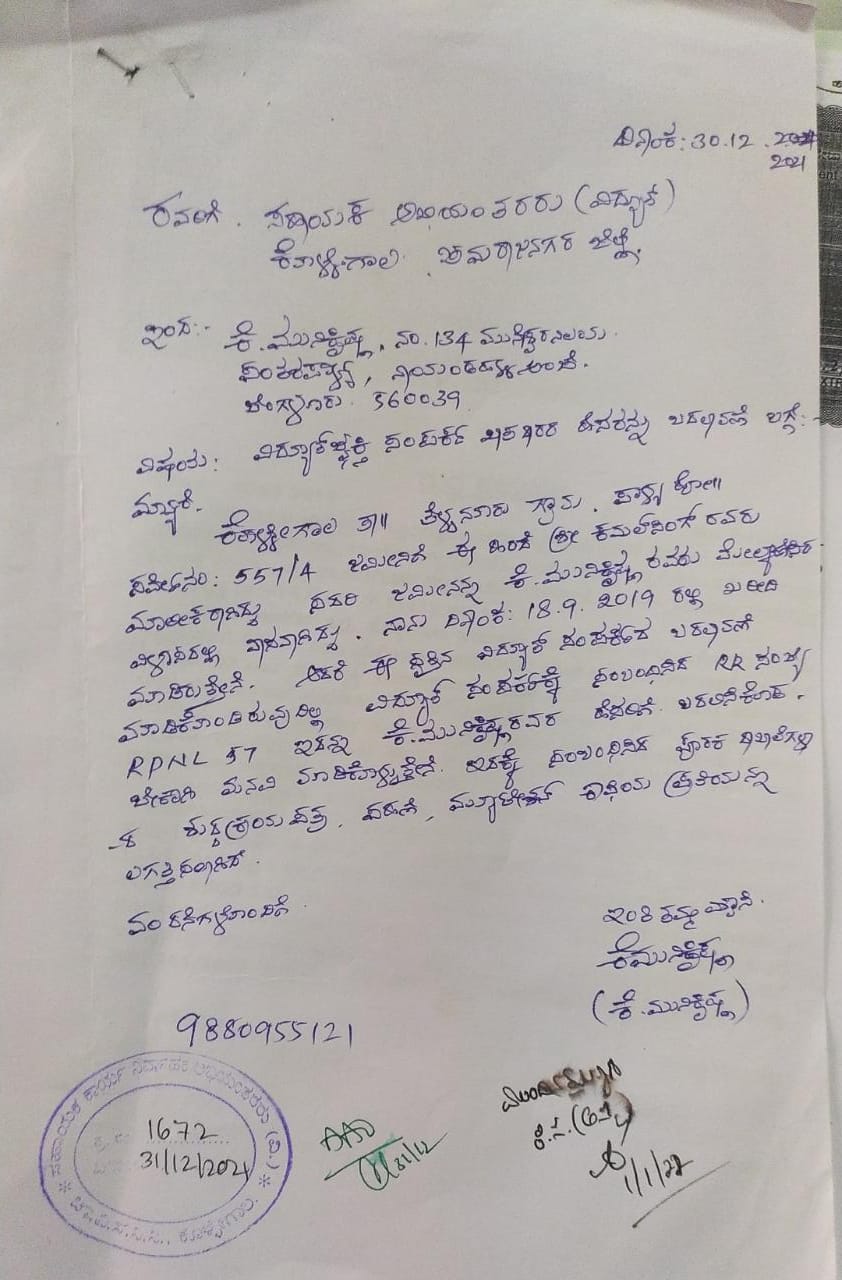 ದಿನಾಂಕ: 30.12.
2021
ರವರಿಗೆ. ಸಹಾಯಕ ಅಭಿಯಂತರರು (ವಿದ್ಯುತ್)
ಕೊಳ್ಳೇಗಾಲ. ಚಾಮರಾಜನಗರ ಜಿಲ್ಲೆ.
ಇಂದ:- ಕೆ.ಮುನಿಕೃಷ್ಣ, ನಂ. 134 ಮುನೇಶ್ವರನಿಲಯ.
ಬೆಂಗಳೂರು. 560039
ವಿಷಯ: ವಿದ್ಯುತ್‌ಶಕ್ತಿ ಸಂಪರ್ಕ ಖಾತೆದಾರರ ಹೆಸರನ್ನು ಬದಲಾವಣೆ ಬಗ್ಗೆ:-
ಮಾನ್ಯರೆ.
ಕೊಳ್ಳೇಗಾಲ ತಾ॥ ಗ್ರಾಮ. ಪಾಳ್ಯ ಹೋ॥
557/4 ಜಮೀನಿಗೆ ಈ ಹಿಂದೆ ಶ್ರೀ ಕಮಲ್‌ಸಿಂಗ್ ರವರು
ಮಾಲೀಕರಾಗಿದ್ದು ಸದರಿ ಜಮೀನನ್ನು ಕೆ.ಮುನಿಕೃಷ್ಣ ರವರು ಮೇಲ್ಕಾಣಿಸಿದ
ವಿಳಾಸದಲ್ಲಿ ವಾಸವಾಗಿದ್ದು. ನಾನು ದಿನಾಂಕ: 18.9.2019 ರಲ್ಲಿ ಖರೀದಿ
ಮಾಡಿರುತ್ತೇನೆ. ಆದರೆ ಈ ವಿದ್ಯುತ್ ಸಂಪರ್ಕದ ಬದಲಾವಣೆ
ಮಾಡಿಕೊಂಡಿರುವುದಿಲ್ಲ ವಿದ್ಯುತ್ ಸಂಪರ್ಕಕ್ಕೆ ಸಂಬಂಧಿಸಿದ RR ಸಂಖ್ಯೆ
RPNL 57 ಇದನ್ನು ಕೆ.ಮುನಿಕೃಷ್ಣರವರ ಹೆಸರಿಗೆ. ಬದಲಿಸಿಕೊಡ.
ಬೇಕಾಗಿ ಮನವಿ ಮಾಡಿಕೊಳ್ಳುತ್ತೇನೆ. ಇದಕ್ಕೆ ಸಂಬಂಧಿಸಿದ ಪೂರಕ ದಾಖಲೆಗಳು
ಶುದ್ಧಕ್ರಯ ಪತ್ರ, ಪಹಣಿ, ಮ್ಯುಟೇಶನ್ ಕಾಪಿಯ ಪ್ರತಿಯನ್ನು
ಲಗತ್ತಿಸಲಾಗಿದೆ.
ವಂದನೆಗಳೊಂದಿಗೆ. ಇಂತಿ ತಮ್ಮ ವಿಶ್ವಾಸಿ.
ಕೆಮುನಿಕೃಷ್ಣ
(ಕೆ.ಮುನಿಕೃಷ್ಣ)
9880955121
ಸಹಾಯಕ ಕಾರ್ಯ ನಿರ್ವಾಹಕ ಅಭಿಯಂತರರು (ವಿ.)
1672
31/12/2021
ಚಾ.ವಿ.ಸ.ನಿ.ನಿ., ಕೊಳ್ಳೇಗಾಲ.
AAO
31/12
1/1/22